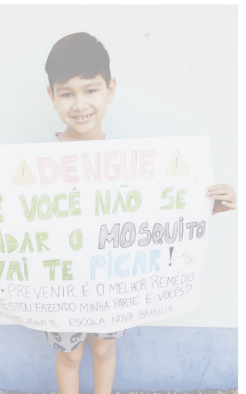 DENGUE
E VOCÊ NÃO SE
DAR O MOSQUITO
VAI TE PICAR!
• PREVENIR É O MELHOR REMÉDIO
ESTOU FAZENDO MINHA PARTE E VOCÊS?
ESCOLA NOVA BRASÍLIA